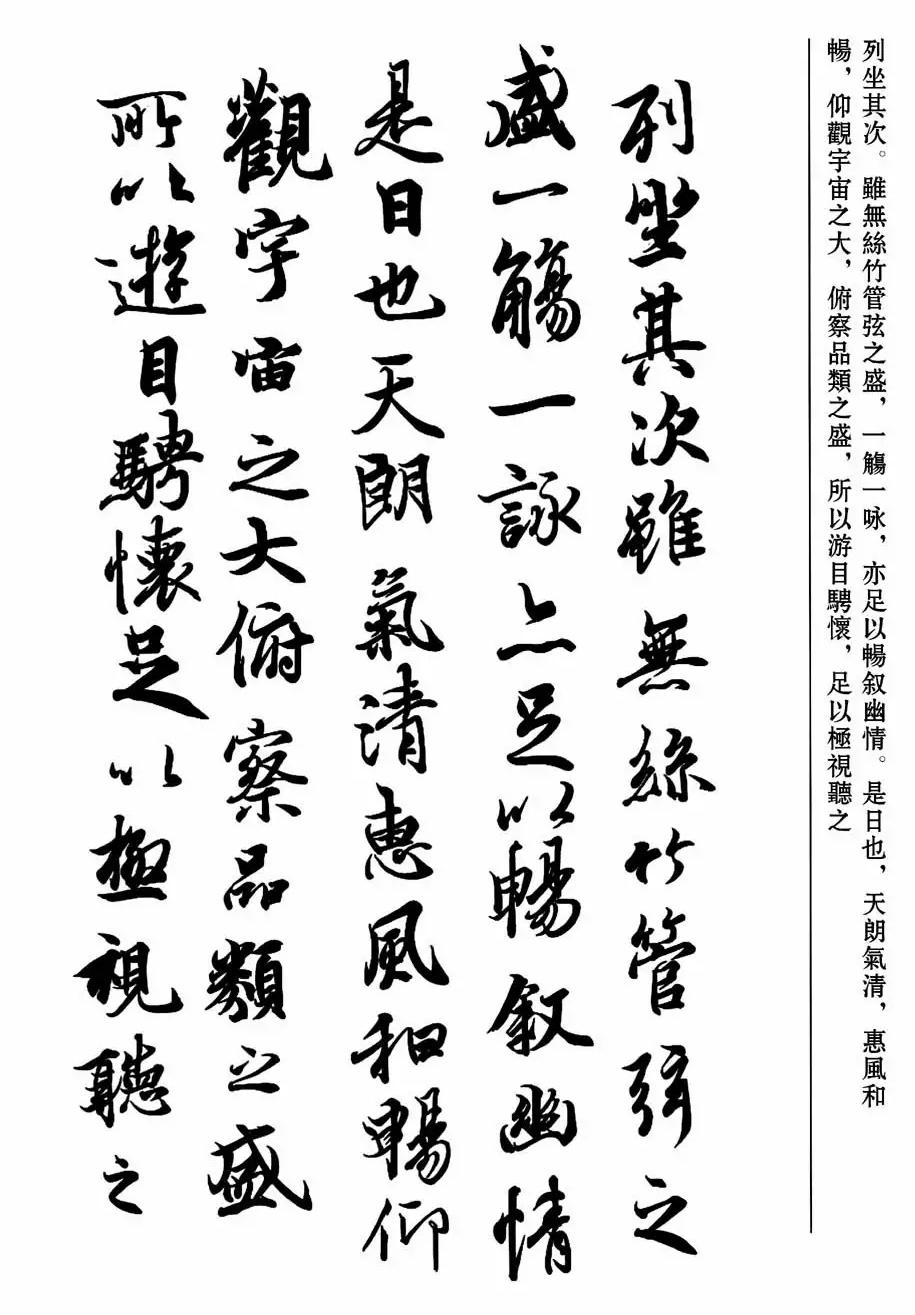 列坐其次。雖無絲竹管弦之盛，一觴一咏，亦足以暢叙幽情。是日也，天朗氣清，惠風和
暢，仰觀宇宙之大，俯察品類之盛，所以游目騁懷，足以極視聽之
列坐其次雖無絲竹管弦之
盛一觴一詠亦足以暢叙幽情
是日也天朗氣清惠風和暢仰
觀宇宙之大俯察品類之盛
所以遊目騁懷足以極視聽之